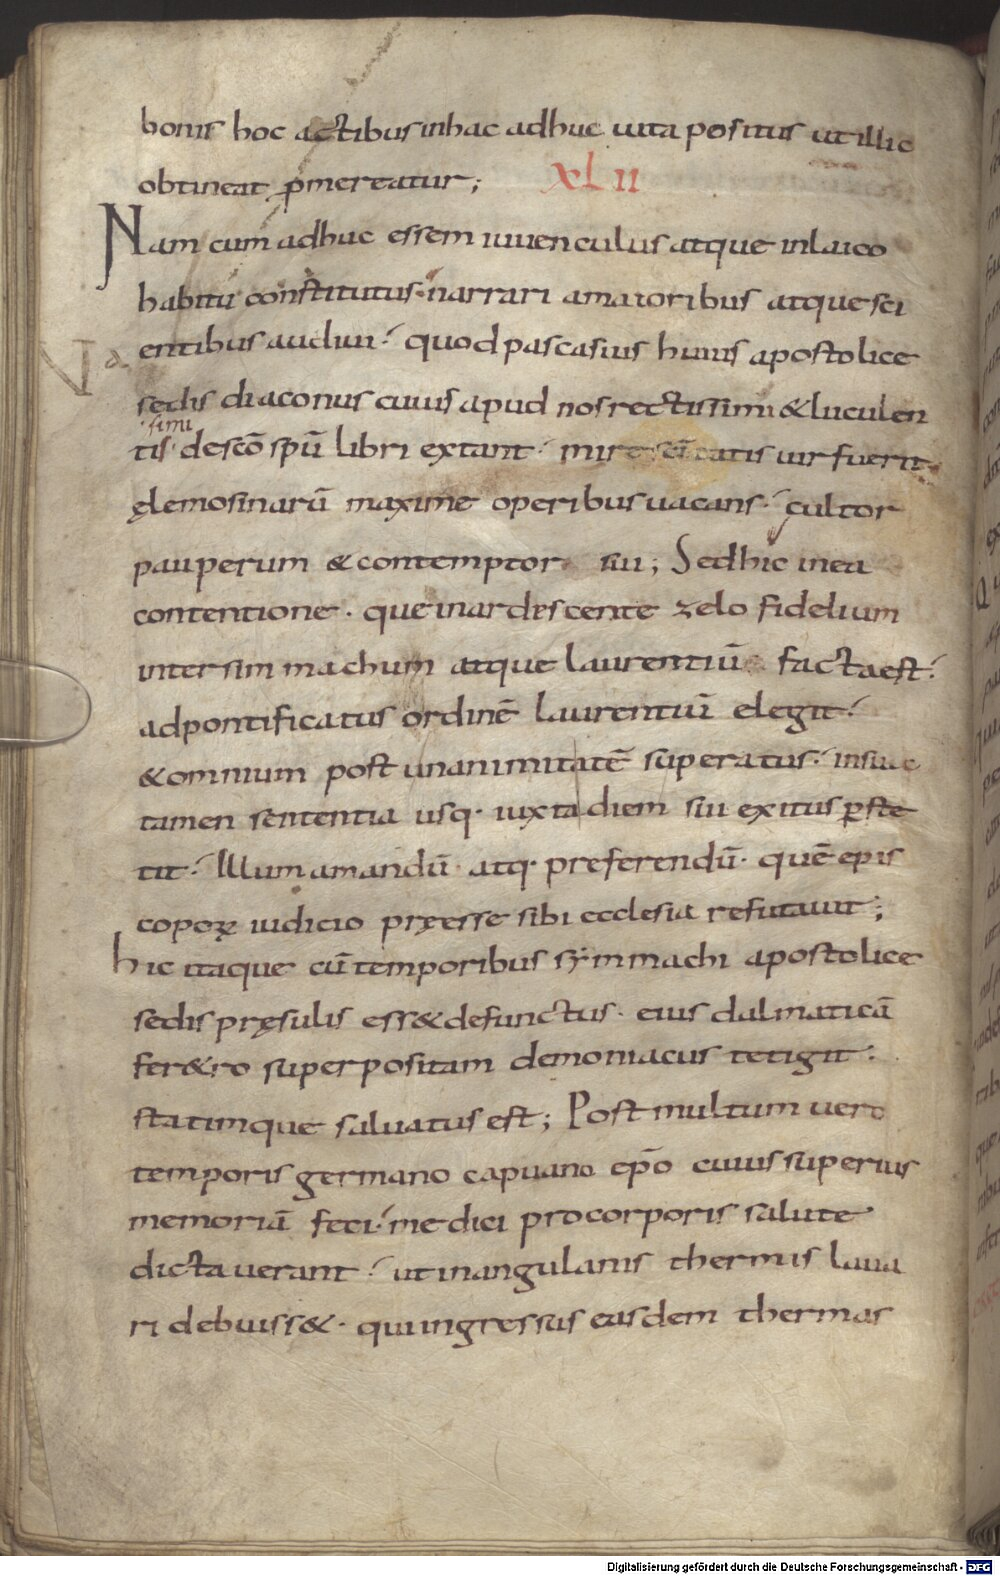 bonis hoc actibus inhac adhuc uita positus ut illic
obtineat ꝓmereatur; XLII
Nam cum adhuc essem iuuenculus atque inlaico
habitu constitutus· narrari amaioribus atque sci
entibus audiui· quod pascasius huius apostolice
sedis diaconus cuius apud nos rectissimi & luculen
simi
tis· descō spū libri extant· mire scītatis uir fuerit·
ęlemosinarū maxime operibus uacans· cultor
pauperum & contemptor sui; Sed hic inea
contentione· que inardescente zelo fidelium
inter simmachum atque laurentiū facta est·
adpontificatus ordinē laurentiū elegit·
& omnium post unanimitatē superatus· insua
tamen sententia usq· iuxta diem sui exitus ꝑste
tit· Illum amandū· atq· preferendū· quē epis
copoꝝ iudicio pręesse sibi ecclesia refutauit;
hic itaque cū temporibus sẏmmachi apostolice
sedis pręsulis ess& defunctus· eius dalmaticā
fer&ro superpositam demoniacus tetigit·
statimque saluatus est; Post multum uero
temporis germano capuano epō cuius superius
memoriā feci· medici procorporis salute
dictauerant· ut inangulanis thermis laua
ri debuiss&· qui ingressus easdem thermas
Digitalisierung gefördert durch die Deutsche Forschungsgemeinschaft - DFG